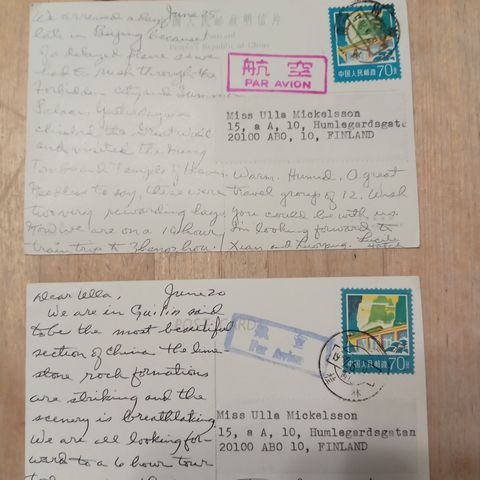 We arrived a day June 25
late in Beijing because
of a delayed plane so we
had to rush through the
Forbidden city and Summer
Palace. Yesterday we
climbed the Great Wall
and visited the Ming
Tombs and Temple of Heaven.
Needless to say, these were
two very rewarding days
Now we are on a 10 hour
train trip to Zhengzhou.
Warm. Humid. A great
travel group of 12. Wish
you could be with us.
I'm looking forward to
Xian and
中国人民邮政明信片
Postcard
People's Republic of China
航空
PAR AVION
中国人民邮政 70分
Miss Ulla Mickelsson
15, a A, 10, Humlegardsgata
20100 ABO, 10, FINLAND
Dear Ulla, June 20
We are in Guilin said
to be the most beautiful
section of China. The lime-
stone rock formations
are striking and the
scenery is breathtaking
We are all looking for-
ward to a 6 hour tour
POSTCARD
航空
Par Avion
中国人民邮政 70分
桂林
Miss Ulla Mickelsson
15, a A, 10, Humlegardsgatan
20100 ABO 10, FINLAND